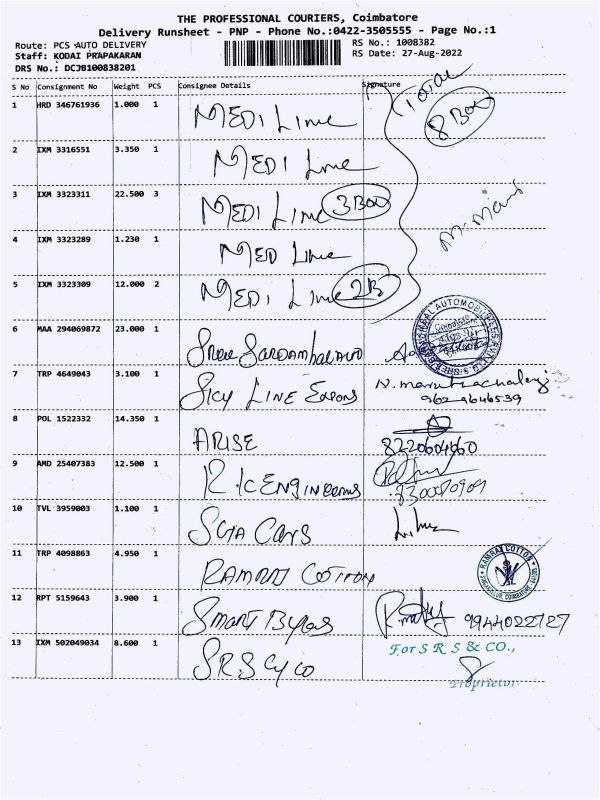 THE PROFESSIONAL COURIERS, Coimbatore
Delivery Runsheet - PNP - Phone No.:0422-3505555 - Page No.:1
Route: PCS AUTO DELIVERY RS No.: 1008382
Staff: KODAI PRAPAKARAN RS Date: 27-Aug-2022
DRS No.: DCJB100838201
S No Consignment No Weight PCS Consignee Details Signature
TOTAL
8 Box
1 HRD 346761936 1.000 1 MEDI Line
2 IXM 3316551 3.350 1 MEDI Line
3 IXM 3323311 22.500 3 MEDI Line 3 Box
4 IXM 3323289 1.230 1 MED Line
5 IXM 3323309 12.000 2 MEDI Line 2B
6 MAA 294069872 23.000 1
7 TRP 4649043 3.100 1 Sky LINE
8 POL 1522332 14.350 1 ARISE 8220604660
9 AMD 25407383 12.500 1 Engineers
10 TVL 3959003 1.100 1 Cars
11 TRP 4098863 4.950 1 RAMRAJ COTTON RAMRAJ COTTON
12 RPT 5159643 3.900 1 Smart 9944022727
13 IXM 502049034 8.600 1 SRS & CO For S R S & CO.,
Proprietor